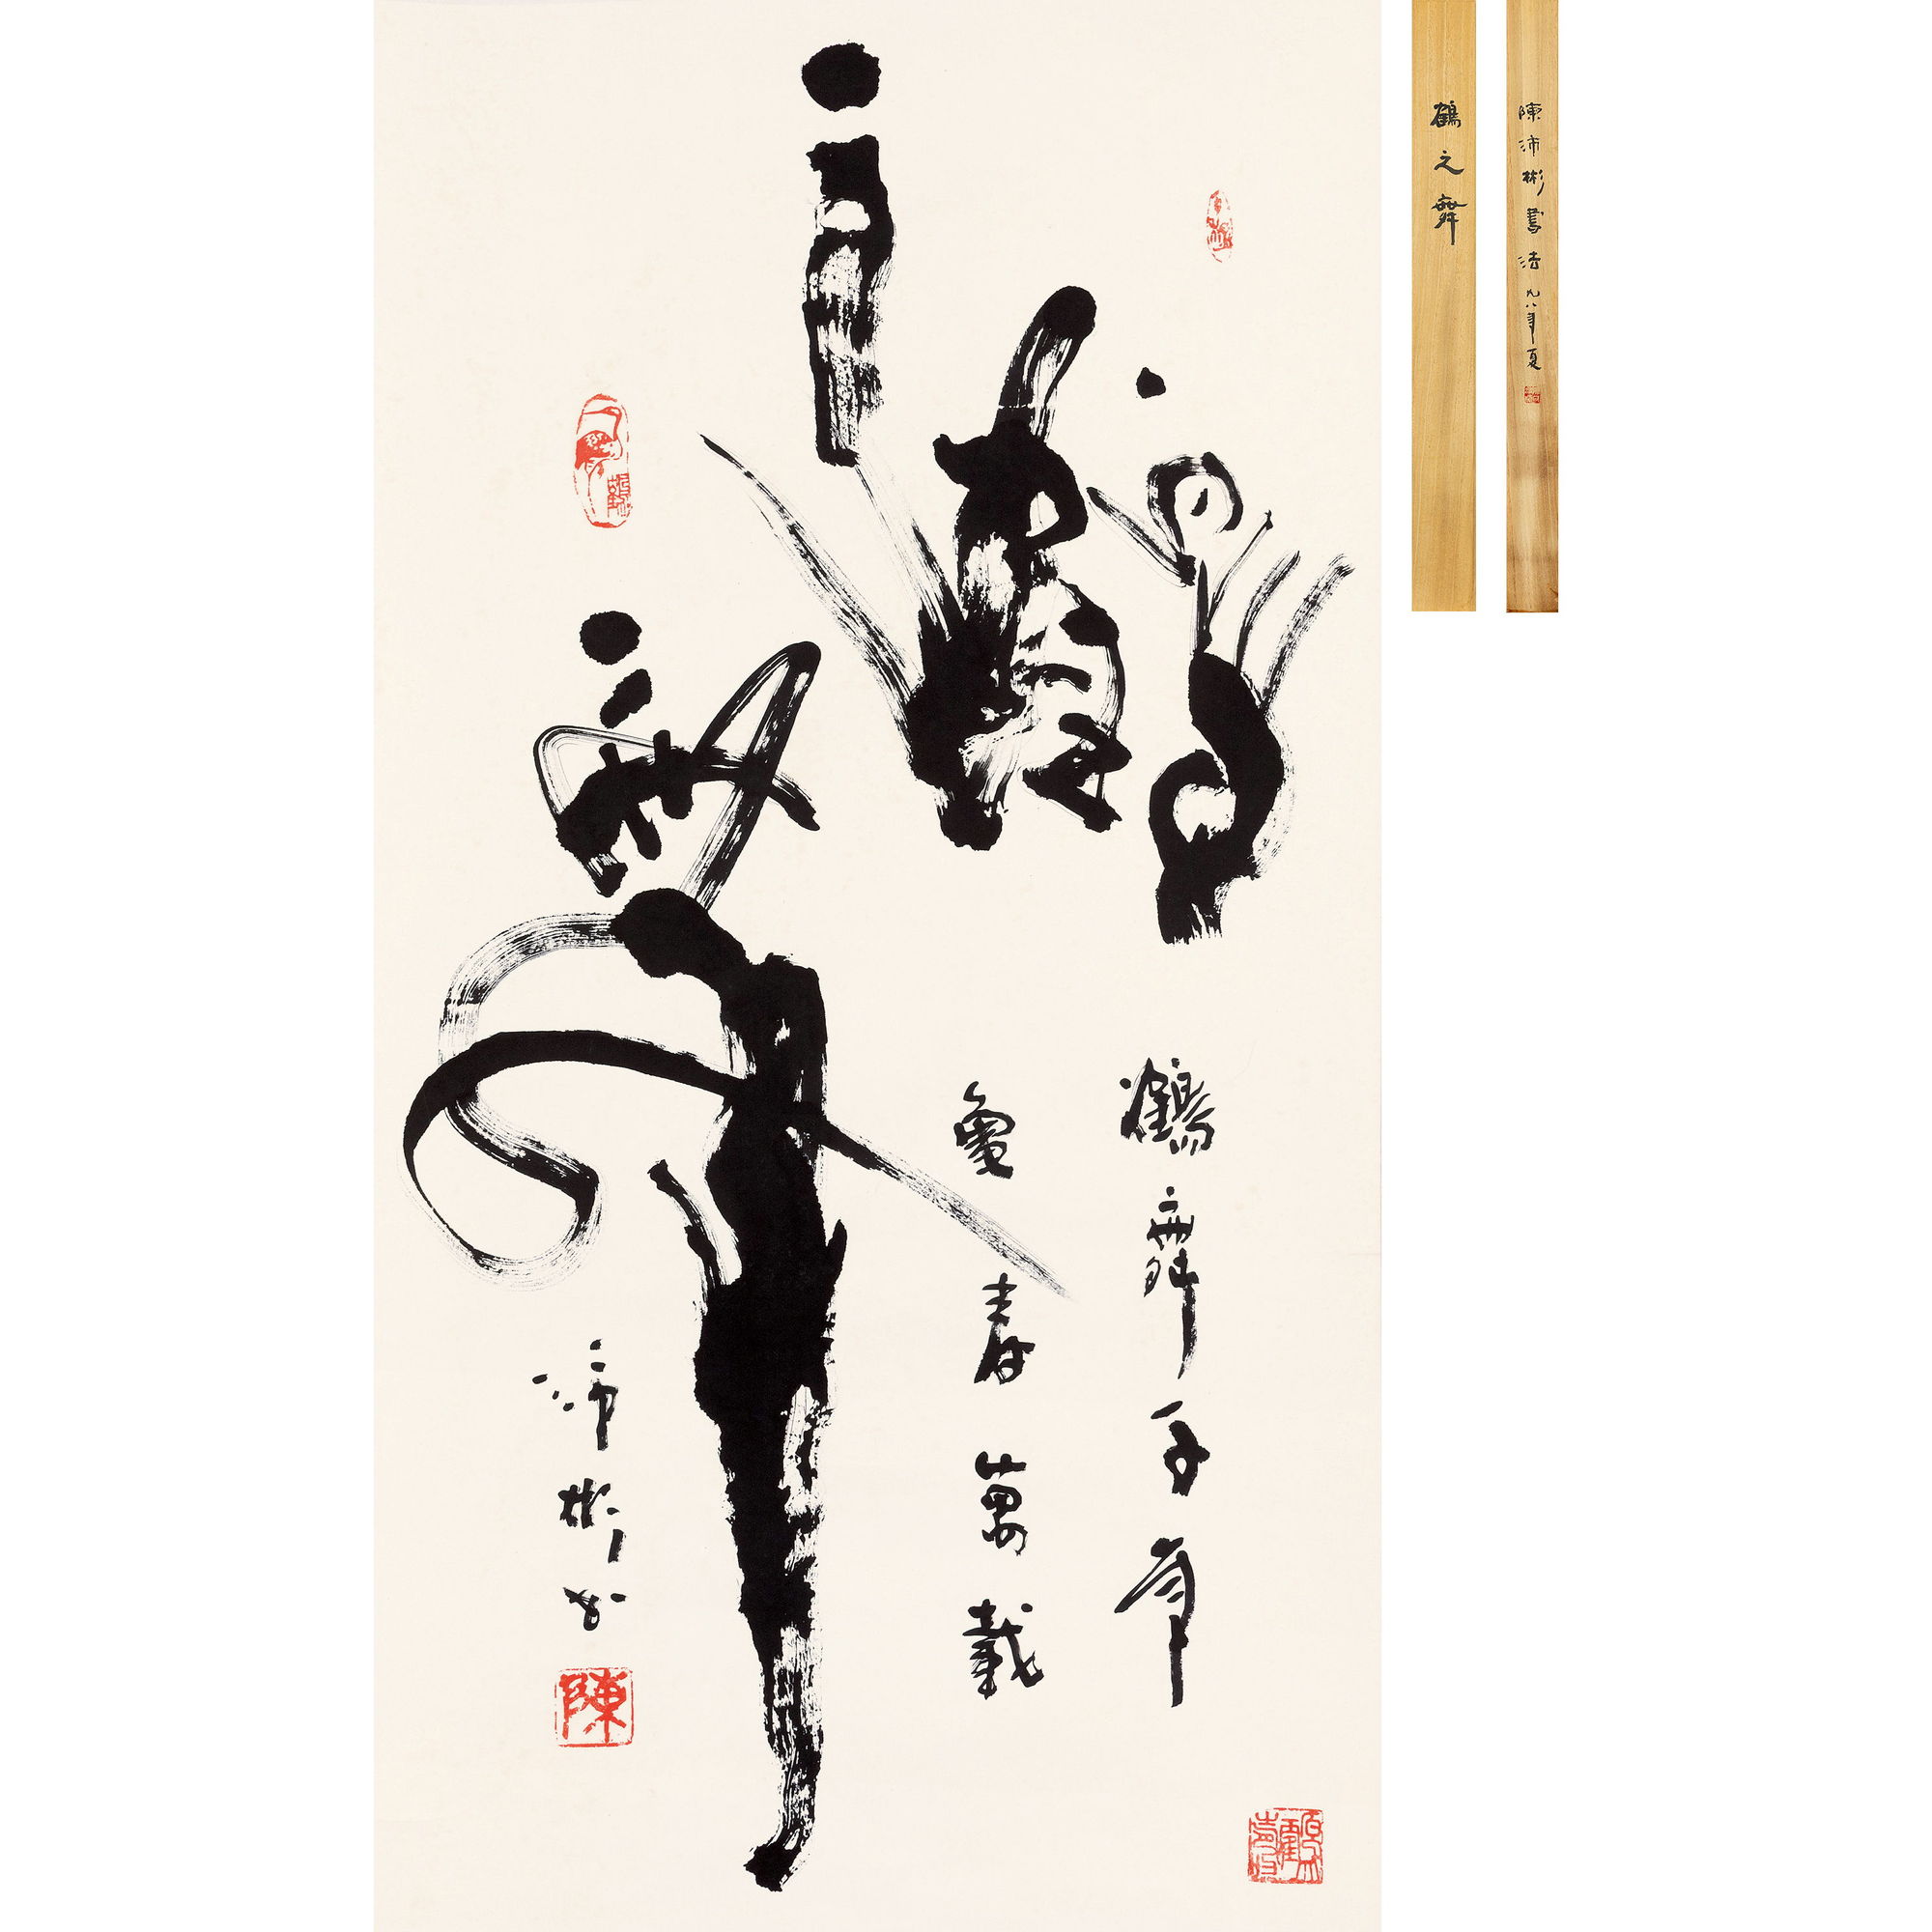 鶴舞
鶴舞千年
龜壽萬載
沛彬书
陳
鶴之舞
陳沛彬書法 九八年夏